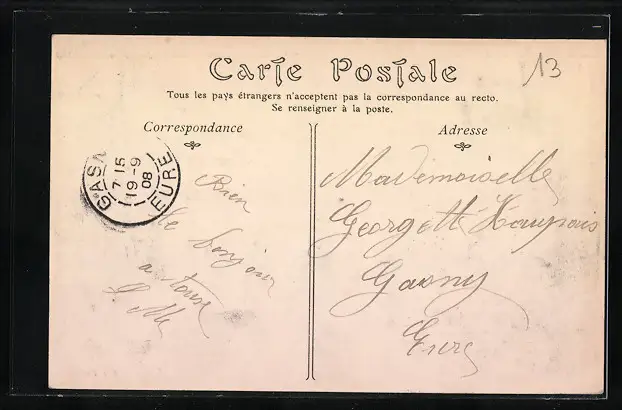 Carte Postale
13
Tous les pays étrangers n'acceptent pas la correspondance au recto.
Se renseigner à la poste.
Correspondance
Adresse
GASN
7-15
19-9
08
EURE
Bien
le bonjour
a tous
Mademoiselle
Georgette
Gasny
Eure